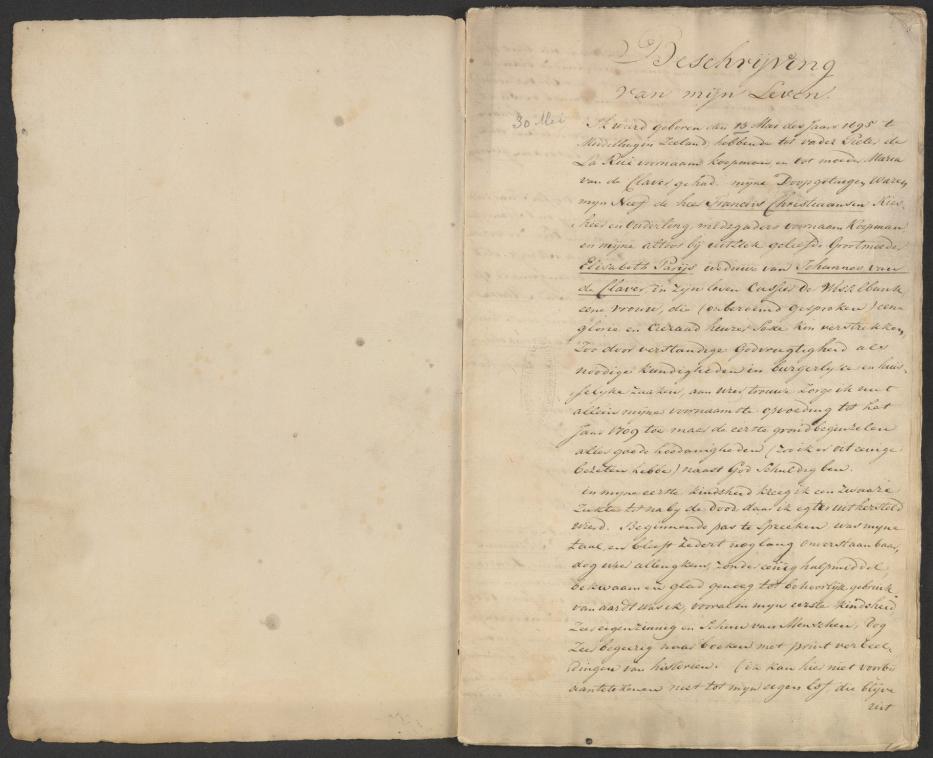 Beschrijving
van mijn Leven.
30 Mei
Ik wierd geboren den 13 Mai des Jaars 1695 t
Middelburg in Zeeland, hebbende tot vader Pieter de
La Rue voornaam koopman en tot moeder Maria
van de Claver gehad. mijne Doopgetuigen waren
mijn Neef de heer Francois Christiaansen Kies-
heer en mede voornaam Koopman
en mijne altoos bij uitstek geliefde Grootmoeder
Elisabeth Parijs weduwe van Johannes van
de Claver, in zijn leven Cassier De Wisselbank
eene vrouw, die (onberoemd gesproken) eene
glorie en Cieraad heurer Sexe kon verstrekken,
Zoo door verstandige Godvrugtigheid als
noodige kundigheden in burgerlijke en huis-
selijke zaaken, aan wier trouwe zorge ik niet
allein mijne voornaamste opvoeding tot het
Jaar 1709 toe maar de eerste grondbeginzelen
aller goede hoedanigheden (zoo ik er ooit eenige
bezeten hebbe) naast God Schuldig ben.
in mijne eerste kindsheid kreeg ik een zwaare
Ziekte tot na by de dood daar ik egter uit hersteld
wierd. Beginnende pas te Spreeken was mijne
taal, en bleeft zedert nog lang onverstaanbaar,
dog wier allengkens, zonder eenig hulpmiddel,
bekwaam en glad genoeg tot behoorlijk gebruik
van aardt was ik, vooral in mijn eerste kindsheid
Zeer eigenzinnig en Schuw van Menschen, Dog
Zeer begeerig naar boeken met print verbeel-
dingen van historien. (ik kan hier niet voorbij
aantetekenen niet tot mijn eigen lof, die blijve
uit